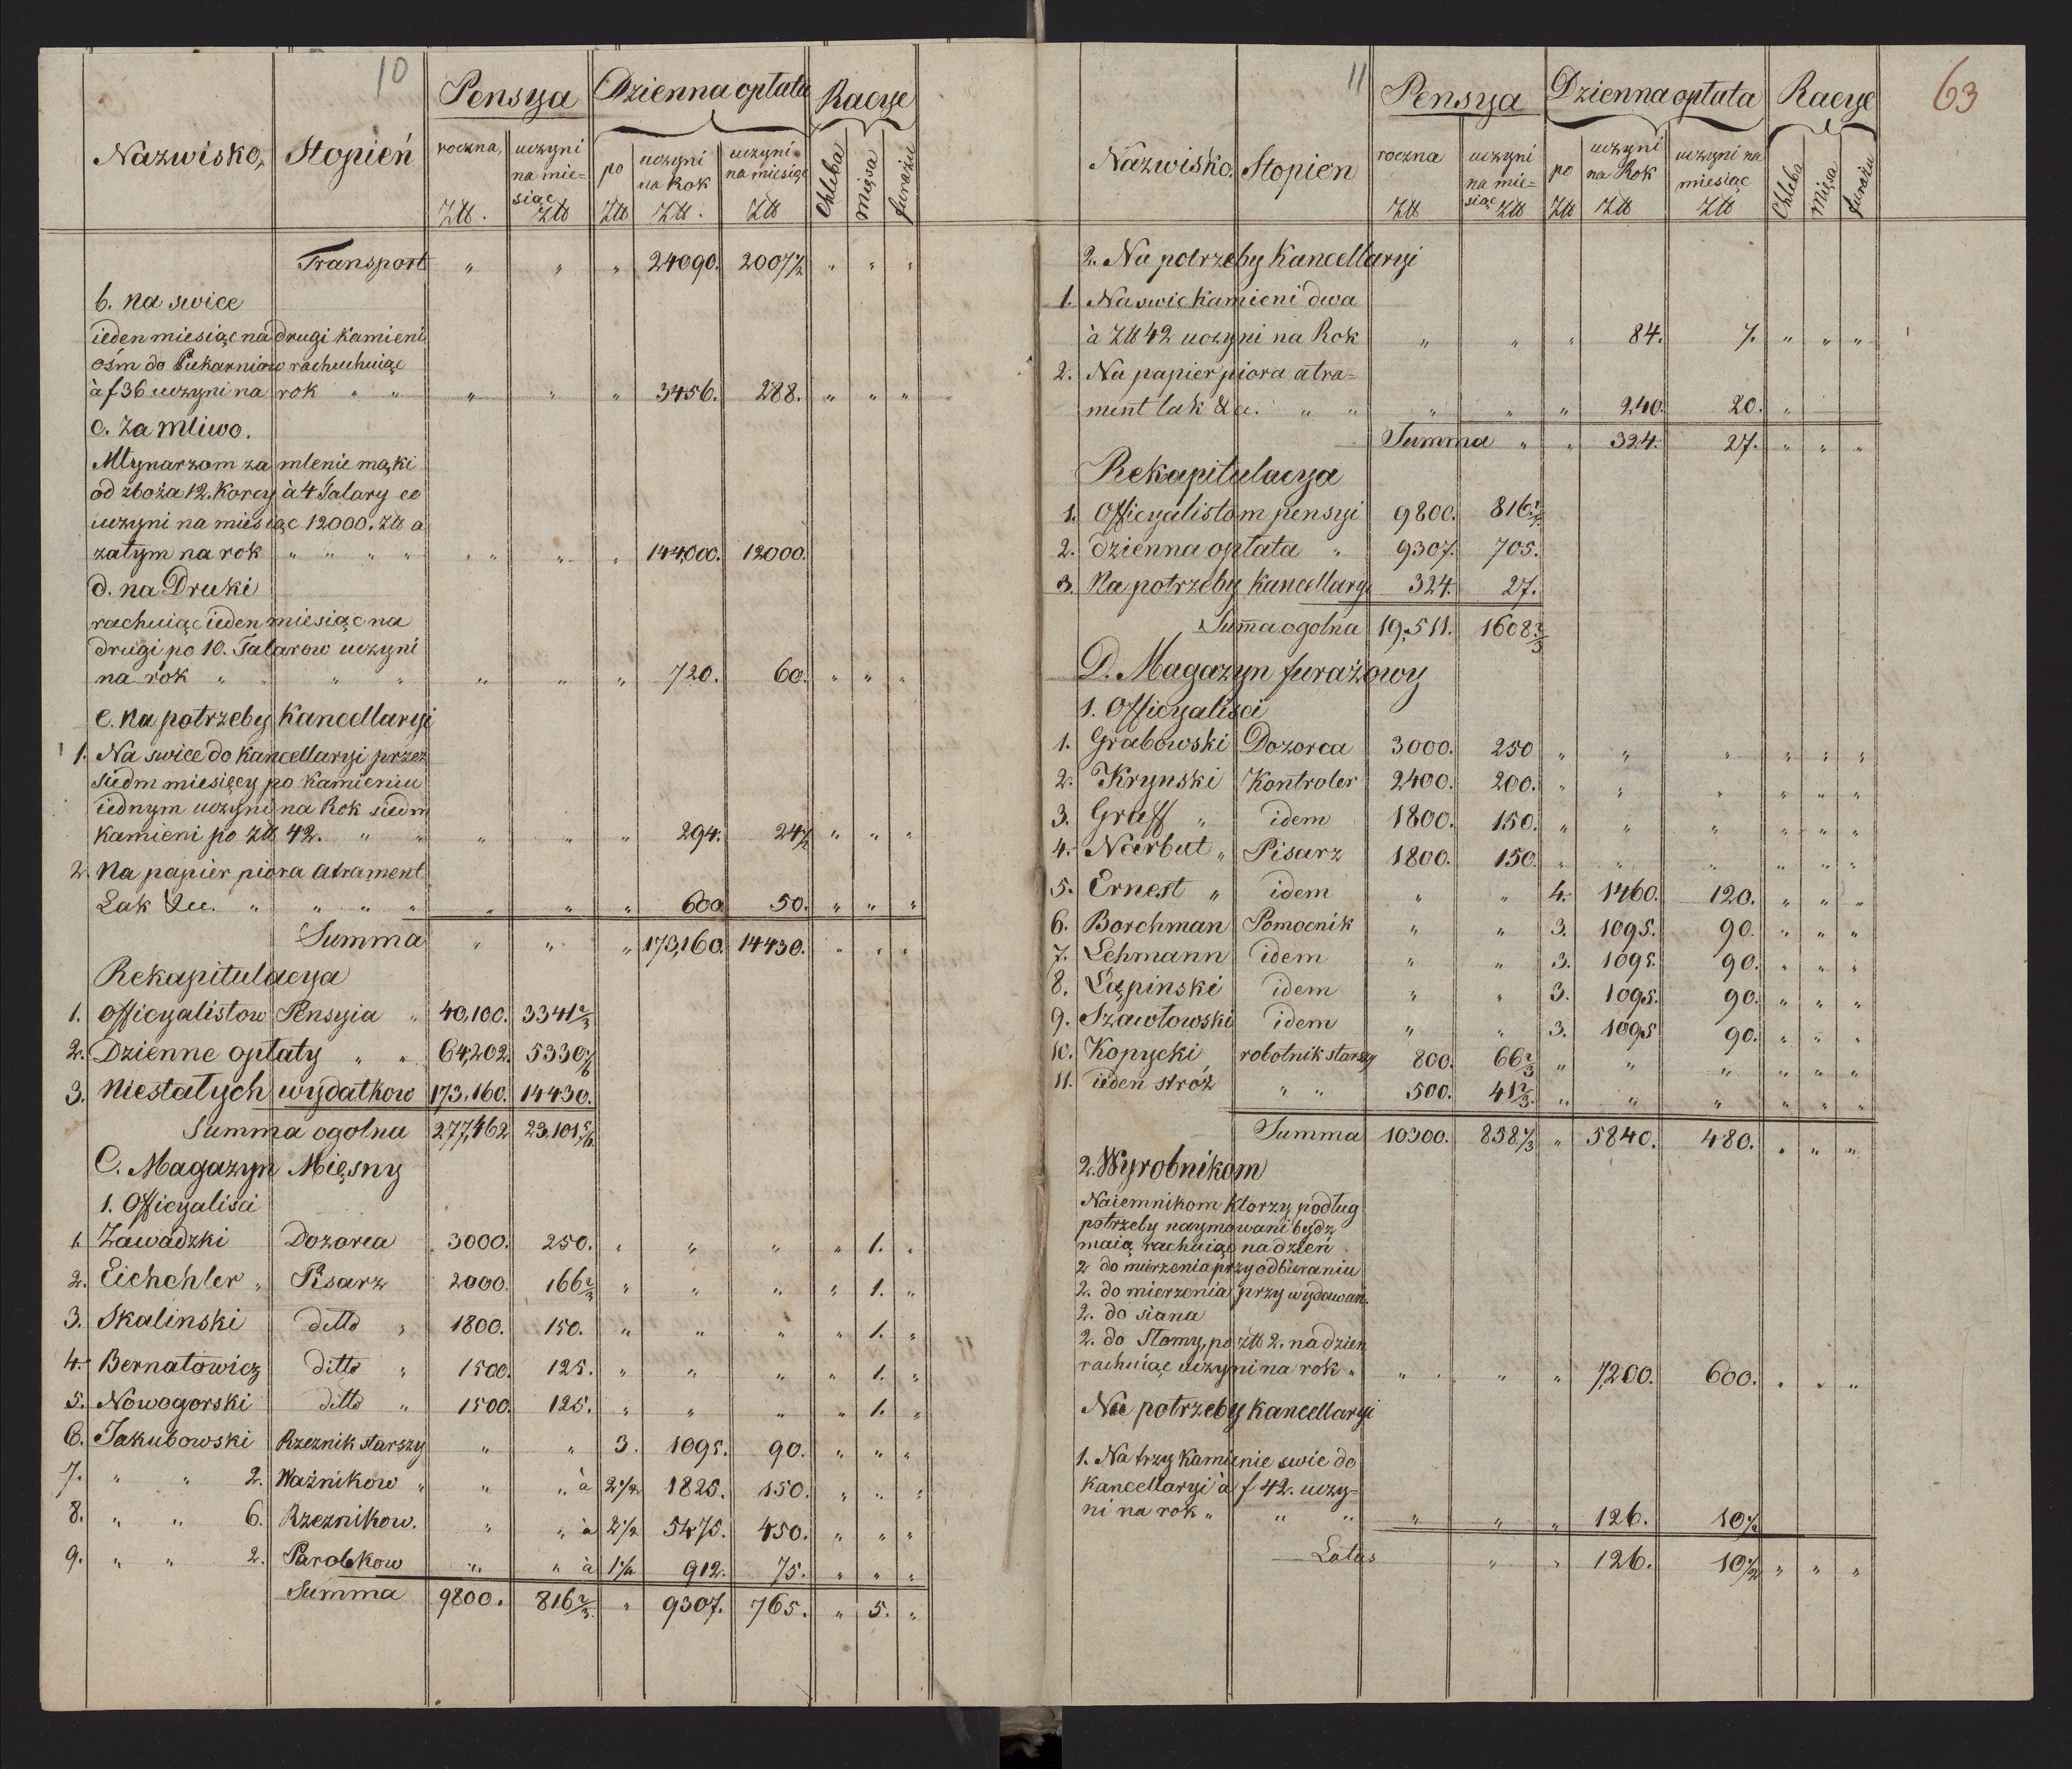 10
Pensya Dzienna opłata Racye
Nazwisko, Stopień roczna, uczyni na mie= siąc po uczyni na Rok uczyni na miesiąc Chleba Mięsa furażu
Złł. Złł Złł Złł. Złł
Transport " " " 24090. 2007½ " " "
b. na swice
ieden miesiąc na drugi kamieni
ośm do Piekarniow rachuchuiąc
à f 36 uczyni na rok " " " " " 3456. 288. " " "
c. Za mliwo.
Młynarzom za mlenie mąki
od zboża 12. Korcy à 4 Talary co
uczyni na miesiąc 12000. Złł a
zatym na rok " " " " " " " " 144,000. 12000.
d. na Druki
rachuiąc ieden miesiąc na
drugi po 10. Talarow uczyni
na rok " " " " " " " 720. 60. " " "
e. Na potrzeby Kancellaryi
1. Na swice do kancellaryi przez
siedm miesięcy po kamieniu
iednym uczyni na Rok siedm
kamieni po Złł 42. " " " " " 294. 24½ " " "
2. Na papier piora atrament
Lak &c. " " " " " " " 600 50. " " "
Summa " " " 173,160. 14430. " " "
Rekapitulacya
1. Officyalistow Pensyia " 40,100. 3341⅔
2. Dzienne opłaty " " 64,202. 5330 1/6
3. Niestałych wydatkow 173,160. 14430.
Summa ogolna 277,462 23,101 5/6
C. Magazyn Mięsny
1. Officyaliści
1. Zawadzki Dozorca 3000. 250. " " " " 1. "
2. Eichchler " Pisarz 2000. 166⅔ " " " " 1. "
3. Skalinski ditto " 1800. 150. " " " " 1. "
4. Bernatowicz ditto " 1500. 125. " " " " 1. "
5. Nowogorski ditto " 1500. 125. " " " " 1. "
6. Jakubowski Rzeznik starszy " " 3. 1095. 90. " " "
7. " " 2. Ważnikow " " " à 2½ 1825. 150. " " "
8. " " 6. Rzeznikow. " " à 2½ 5475. 450. " " "
9. " " 2. Parobkow " " à 1¼ 912. 75. " " "
Summa 9800. 816⅔ " 9307. 765. " 5. "
11
63
Pensya Dzienna opłata Racye
Nazwisko. Stopien roczna uczyni na mie= siąc po uczyni na Rok uczyni na miesiąc Chleba Mięsa furażu
Złł Złł Złł Złł Złł
2. Na potrzeby Kancellaryi
1. Na swic kamieni dwa
à Złł 42 uczyni na Rok " " " 84. 7. " " "
2. Na papier piora atra=
ment lak &c. " " " " " 240. 20. "
Summa " " 324. 27. " " "
Rekapitulacya
1. Officyalistom pensyi 9800. 816⅔
2. dzienna opłata " 9307. 705.
3. Na potrzeby kancellaryi 324. 27.
Summa ogolna 19,511. 1608⅔
D. Magazyn furażowy
1. Officyalisci
1. Grabowski Dozorca 3000. 250 " " " " " "
2. Krynski Kontroler 2400. 200. " " " " " "
3. Graff " idem 1800. 150. " " " " " "
4. Narbut " Pisarz 1800. 150. " " " " " "
5. Ernest " idem " " 4. 1460. 120. " " "
6. Borchman Pomocnik " " 3. 1095. 90. " " "
7. Lehmann idem " " 3. 1095. 90. " " "
8. Łapinski idem " " 3. 1095. 90. " " "
9. Szawłowski idem " " 3. 1095 90. " " "
10. Kopycki robotnik starszy 800. 66⅔ " " " " " "
11. ieden stróż " " 500. 41⅔. " " " " " "
Summa 10300. 858⅓ " 5840. 480. " " "
2. Wyrobnikom
Naiemnikom ktorzy podług
potrzeby naymowani bydz
maią rachuiąc na dzień
2 do mierzenia przy odbieraniu
2. do mierzenia przy wydawan.
2. do siana
2. do Słomy, po złł 2. na dzien
rachuiąc uczyni na rok " " " " 7,200. 600. " " "
Na potrzeby kancellaryi
1. Na trzy Kamienie swic do
kancellaryi à f 42. uczy=
ni na rok " " " " " " 126. 10½
Latus " " 126. 10½ " " "